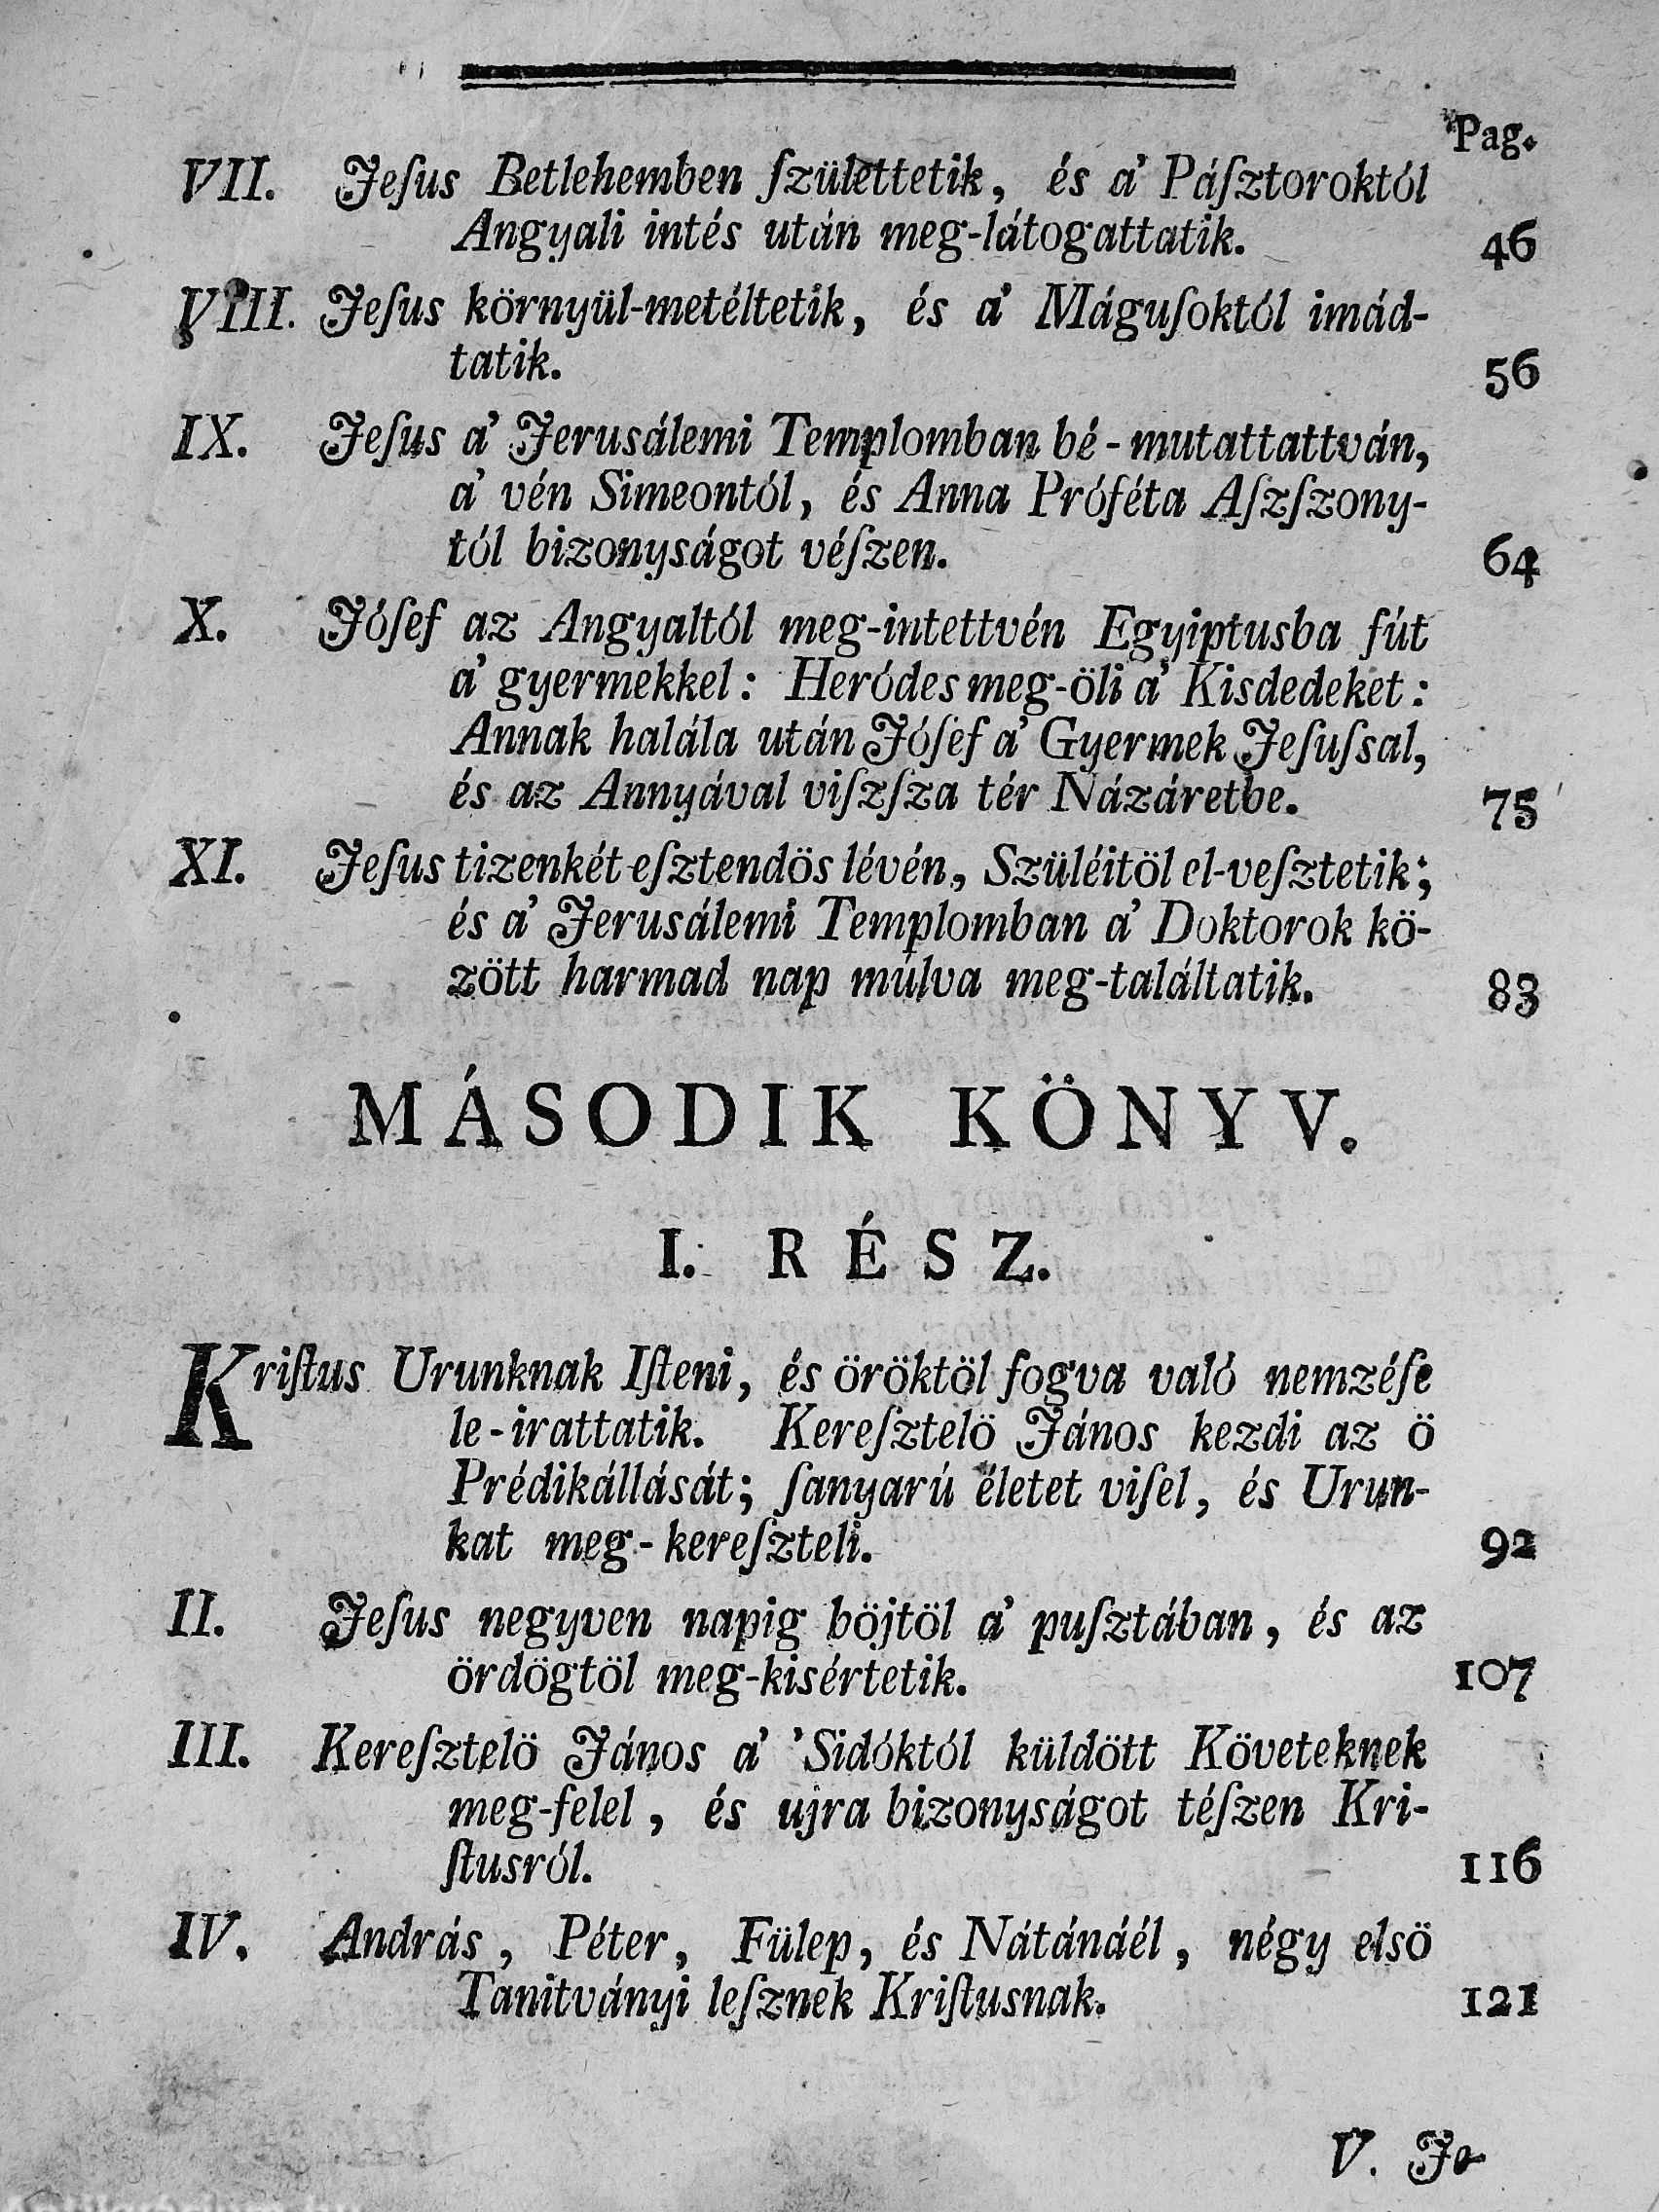 Pag.
VII. Jeſus Betlehemben ſzülettetik, és a' Páſztoroktól
Angyali intés után meg-látogattatik. 46
VIII. Jeſus környül-metéltetik, és a' Máguſoktól imád-
tatik. 56
IX. Jeſus a' Jerusálemi Templomban bé-mutattattván,
a' vén Simeontól, és Anna Próféta Aſzſzony-
tól bizonyságot véſzen. 64
X. Jóſef az Angyaltól meg-intettvén Egyiptusba fút
a' gyermekkel: Heródes meg-öli a' Kisdedeket:
Annak halála után Jóſef a' Gyermek Jeſuſsal,
és az Annyával viſzſza tér Názáretbe. 75
XI. Jeſus tizenkét eſztendös lévén, Szüléitöl el-veſztetik;
és a' Jerusálemi Templomban a' Doktorok kö-
zött harmad nap múlva meg-találtatik. 83
MÁSODIK KÖNYV.
I. RÉSZ.
Kriſtus Urunknak Iſteni, és öröktöl fogva való nemzéſe
le-irattatik. Kereſztelö János kezdi az ö
Prédikállását; ſanyarú életet viſel, és Urun-
kat meg-kereſzteli. 92
II. Jeſus negyven napig böjtöl a' puſztában, és az
ördögtöl meg-kisértetik. 107
III. Kereſztelö János a' 'Sidóktól küldött Követeknek
meg-felel, és ujra bizonyságot téſzen Kri-
ſtusról. 116
IV. András, Péter, Fülep, és Nátánáél, négy elsö
Tanitványi leſznek Kriſtusnak. 121
V. Je-